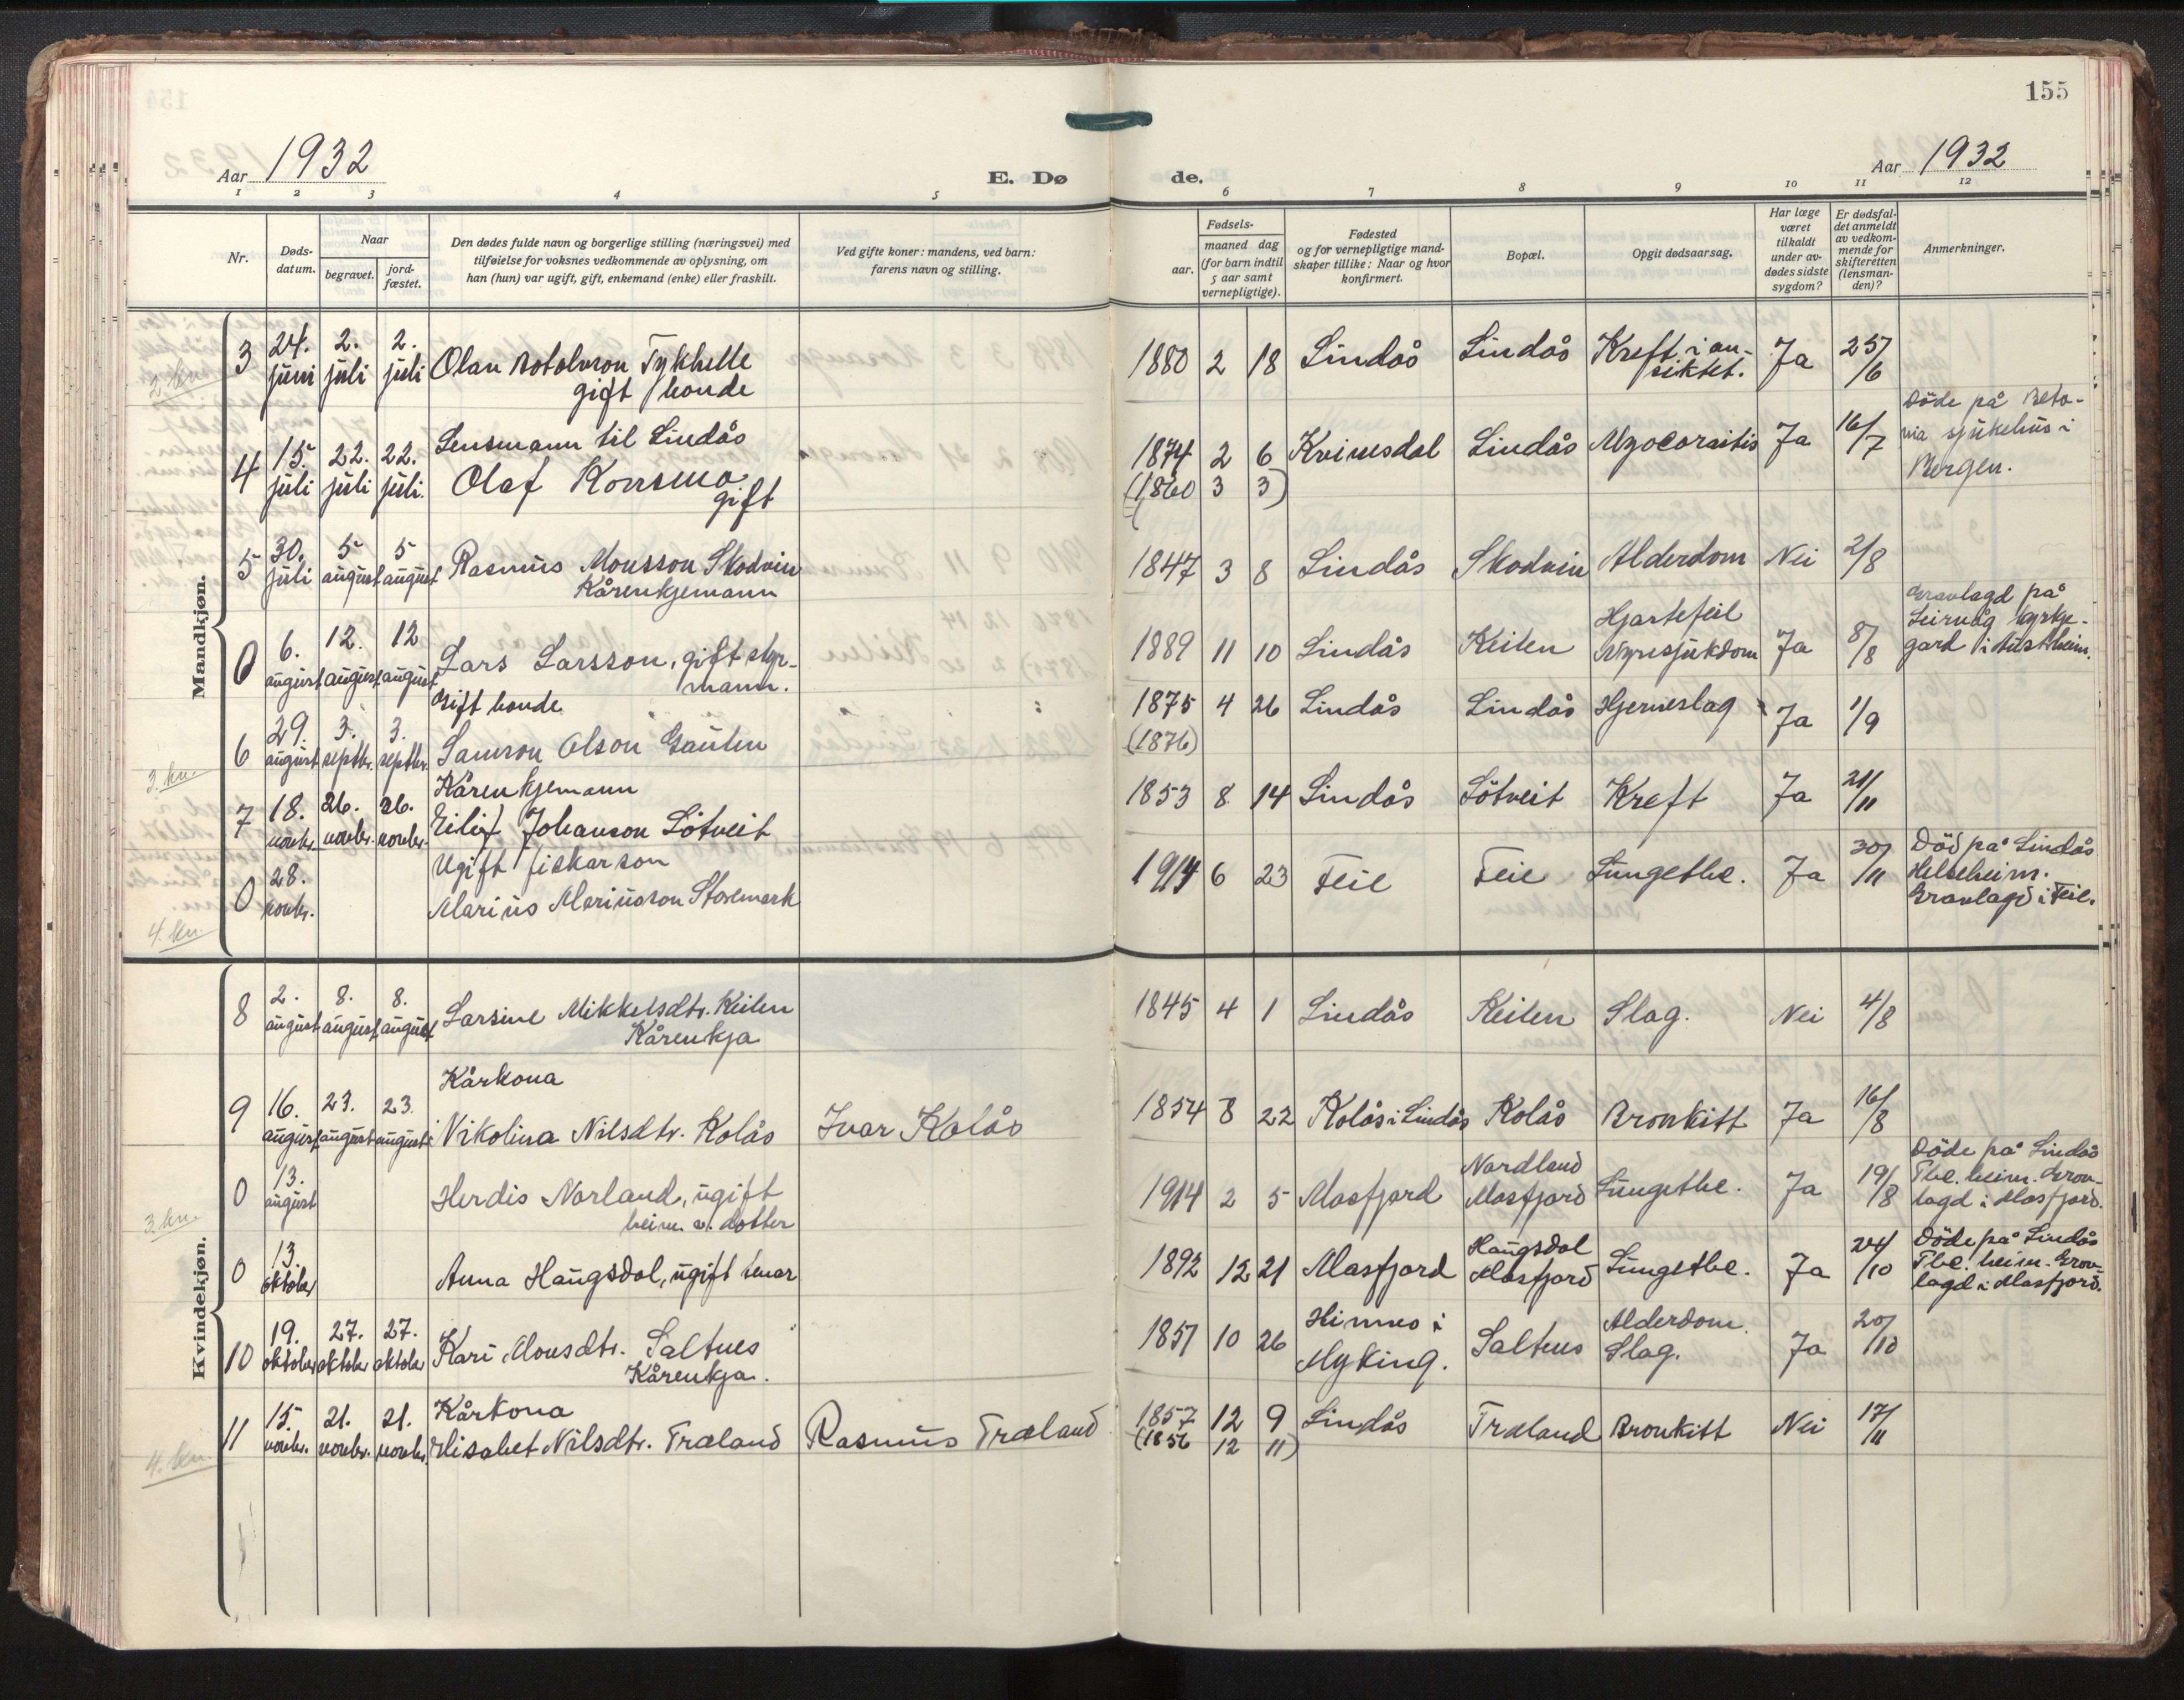 155
Aar 1932
E. Dø
de.
Aar 1932
1 2 3 4 5 6 7 8 9 10 11 12
Nr.
Døds-
datum.
Naar
begravet.
jord-
fæstet.
Den dødes fulde navn og borgerlige stilling (næringsvei) med
tilføielse for voksnes vedkommende av oplysning, om
han (hun) var ugift, gift, enkemand (enke) eller fraskilt.
Ved gifte koner: mandens, ved barn:
farens navn og stilling.
Fødsels-
aar.
maaned dag
(for barn indtil
5 aar samt
vernepligtige).
Fødested
og for vernepligtige mand-
skaper tillike: Naar og hvor
konfirmert.
Bopæl.
Opgit dødsaarsag.
Har læge
været
tilkaldt
under av-
dødes sidste
sygdom?
Er dødsfal-
det anmeldt
av vedkom-
mende for
skifteretten
(lensman-
den)?
Anmerkninger.
Mandkjøn.
2. kv.
3 24. juni 2. juli 2. juli Olan Botolvson Tykhelle
gift bonde
1880 2 18 Lindås Lindås Kreft i an-
siktet. Ja 25/6
4 15. juli 22. juli 22. juli. Lensmann til Lindås
Olaf Korsmo
gift
1874 2 6 Kvinesdal Lindås Myocarsitis Ja 16/7
(1860 3 3)
Döde på Beta-
nia sjukehus i
Bergen.
5 30. juli 5 august 5 august Rasmus Monsson Skodvin
Kårenkjemann
1847 3 8 Lindås Skodvin Alderdom Nei 2/8
0 6. august 12. august 12 august Lars Larsson, gift styr-
mann.
1889 11 10 Lindås Keilen Hjartefeil
Nyresjukdom Ja 8/8
Gravlagd på
Leirvåg kyrkje-
gard i Austrheim.
6 29. august 3. septbr. 3. septbr. Gift bonde
Samson Olson Gauten
1875 4 26 Lindås Lindås Hjerneslag Ja 1/9
(1876)
3. kv.
7 18. novbr. 26. novbr. 26. novbr. Kårenkjemann
Eiliv Johanson Lötveit
1853 8 14 Lindås Lötveit Kreft Ja 21/11
0 28. novbr. Ugift fiskarson
Marius Mariusson Storemark
1914 6 23 Feie Feie Lungetbc. Ja 30/11
Död på Lindås
Helseheim.
Gravlagd i Feie.
4. kv.
Kvindekjøn.
8 2. august 8. august 8. august Larsine Mikkelsdtr. Keilen
Kårenkja
1845 4 1 Lindås Keilen Slag. Nei 4/8
9 16. august 23. august 23. august Kårkona
Nikolina Nilsdtr. Kolås Ivar Kolås
1854 8 22 Kolås i Lindås Kolås Bronkitt Ja 16/8
0 13. august Herdis Norland, ugift
heim. v. dotter
1914 2 5 Masfjord Nordland
Masfjord Lungetbc. Ja 19/8
Döde på Lindås
Tbc. heim. Grav-
lagd i Masfjord.
3. kv.
0 13. oktober Anna Haugsdal, ugift tenar
1892 12 21 Masfjord Haugsdal
Masfjord Lungetbc. Ja 24/10
Döde på Lindås
Tbc. heim. Grav-
lagd i Masfjord.
10 19. oktober 27. oktober 27. oktober Kari Monsdtr. Saltnes
Kårenkja.
1857 10 26 Hinnes i
Myking. Saltnes Alderdom.
Slag. Ja 20/10
11 15. novbr. 21. novbr. 21. novbr. Kårkona
Elisabet Nilsdtr. Træland Rasmus Træland
1857 12 9 Lindås Træland Bronkitt Nei 17/11
(1856 12 11)
4. kv.